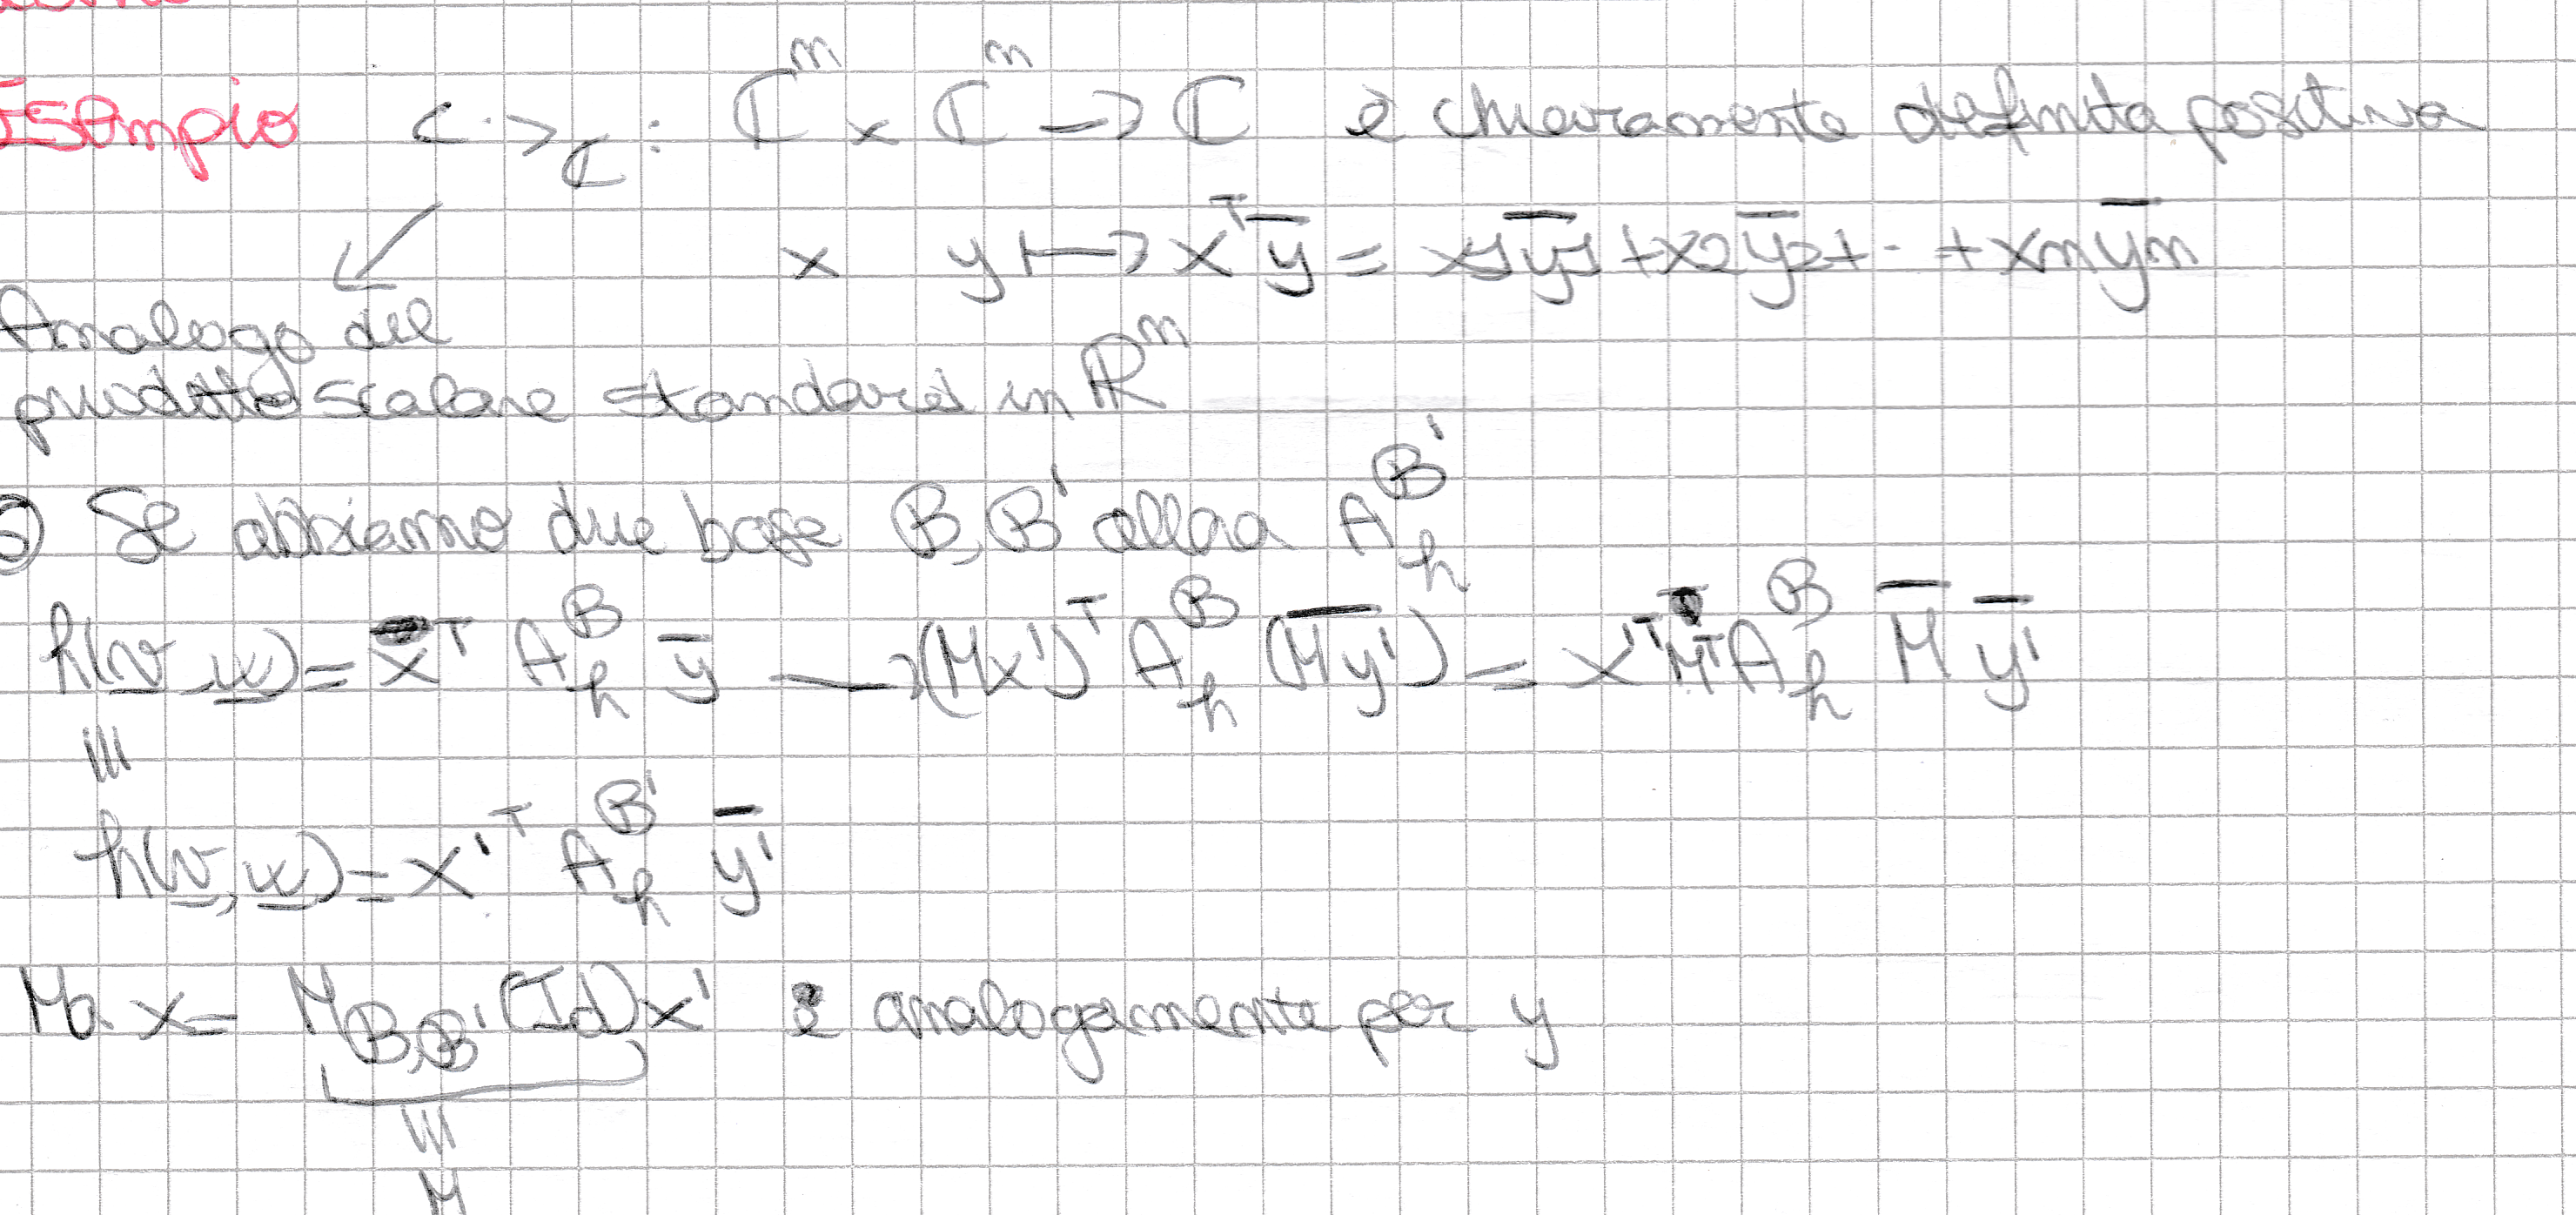 Esempio < · >_ℂ : ℂⁿ × ℂⁿ → ℂ è chiaramente definita positiva
x y ↦ xᵀ ȳ = x1 ȳ1 + x2 ȳ2 + · · + xn ȳn
Analogo del
prodotto scalare standard in ℝⁿ
Se abbiamo due base B, B' allora A_h^B'
h(v, w) = xᵀ A_h^B ȳ → (Mx')ᵀ A_h^B (M̅y̅'̅) = x'ᵀ Mᵀ A_h^B M̅ y̅'
|||
h(v, w) = x'ᵀ A_h^B' y̅'
Ma x = M_B,B' (Id) x' e analogamente per y
|||
M